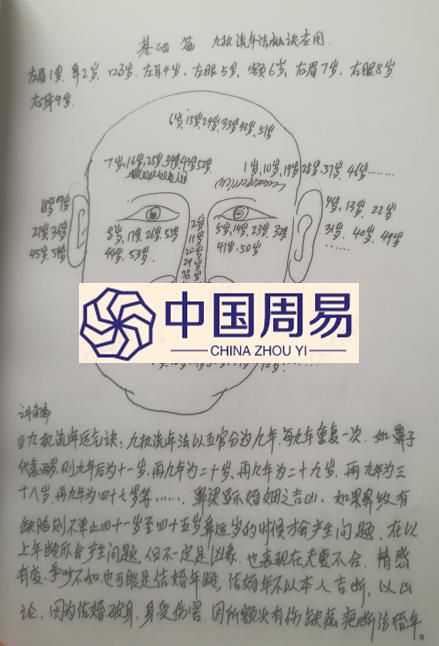 基础篇 九执流年法秘诀应用
左眉1岁,鼻2岁,口3岁,左耳4岁,左眼5岁,额6岁,右眉7岁,右眼8岁
右耳9岁.
6岁,15岁,24岁,33岁42岁,51岁
7岁,16岁,25岁,34岁,43岁52岁
1岁,10岁,19岁28岁,37岁,46岁……
18岁9岁
27岁,36岁
45岁,54岁
8岁,17岁 26岁,
44岁,53岁.
2岁
11岁
20岁
29岁
5岁,14岁,23岁,32岁
41岁、50岁
4岁,13岁 22岁
31岁、40岁、49岁
……
中国周易
CHINA ZHOU YI
①九执流年运气诀:九执流年法以五官分为九年.每九年重复一次.如鼻子
代表两岁,则九年后为十一岁,再九年为二十岁,再九年为二十九岁,再九年为三
十八岁,再九年为四十七岁等……,鼻梁显示婚姻之吉凶.如果鼻
缺陷则不单止四十一岁至四十五岁鼻运岁的时候才会产生问题,在以
上年龄亦会产生问题,但不一定是凶象.也表现在夫妻不合.情感
有变.事也可能是结婚年龄,结婚年不以本人吉断,以凶
论.因为结婚破身,身受伤害.因所额头有伤缺痕疤断法婚年。